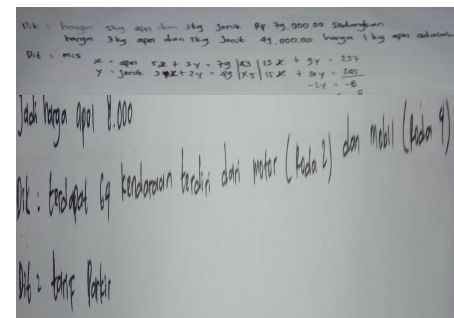 Dik : harga 5kg apel dan 3kg jeruk Rp 79.000.00 sedangkan
harga 3kg apel dan 2kg jeruk 49.000.00 harga 1 kg apel adalah
Dit : mis
x = apel 5x + 3y = 79 |x3| 15x + 9y = 237
y = jeruk 3x + 2y = 49 |x5| 15x + 10y = 245
-1y = -8
Jadi harga apel 8.000
Dik : terdapat 69 kendaraan terdiri dari motor (Roda 2) dan mobil (Roda 4)
Dit = tarif Parkir